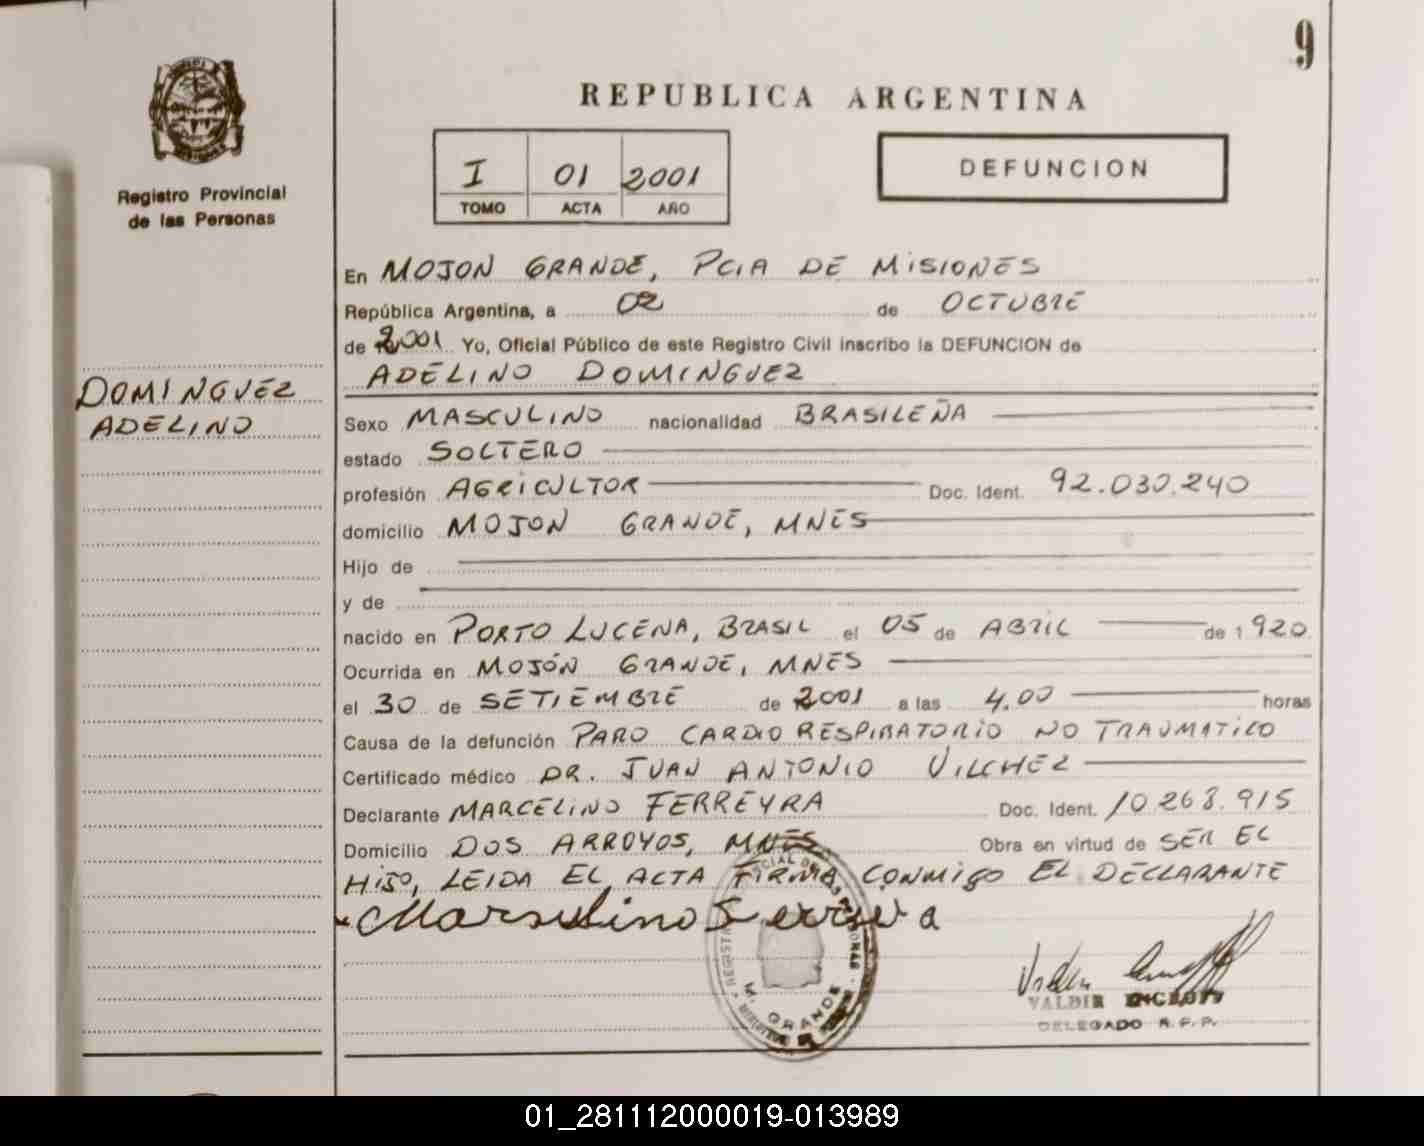 9
REPUBLICA ARGENTINA
I 01 2001
TOMO ACTA AÑO
DEFUNCION
Registro Provincial
de las Personas
DOMINGUEZ
ADELINO
En MOJON GRANDE, PCIA DE MISIONES
República Argentina, a 02 de OCTUBRE
de 2001 Yo, Oficial Público de este Registro Civil inscribo la DEFUNCION de
ADELINO DOMINGUEZ
Sexo MASCULINO nacionalidad BRASILEÑA
estado SOLTERO
profesión AGRICULTOR Doc. Ident. 92.030.240
domicilio MOJON GRANDE, MNES
Hijo de
y de
nacido en PORTO LUCENA, BRASIL el 05 de ABRIL de 1920
Ocurrida en MOJÓN GRANDE, MNES
el 30 de SETIEMBRE de 2001 a las 4.00 horas
Causa de la defunción PARO CARDIO RESPIRATORIO NO TRAUMATICO
Certificado médico DR. JUAN ANTONIO VILCHEZ
Declarante MARCELINO FERREYRA Doc. Ident. 10.268.915
Domicilio DOS ARROYOS, MNES Obra en virtud de SER EL
HIJO, LEIDA EL ACTA FIRMA CONMIGO EL DECLARANTE
M. GRANDE
VALDIR
DELEGADO R.P.P.
01_281112000019-013989